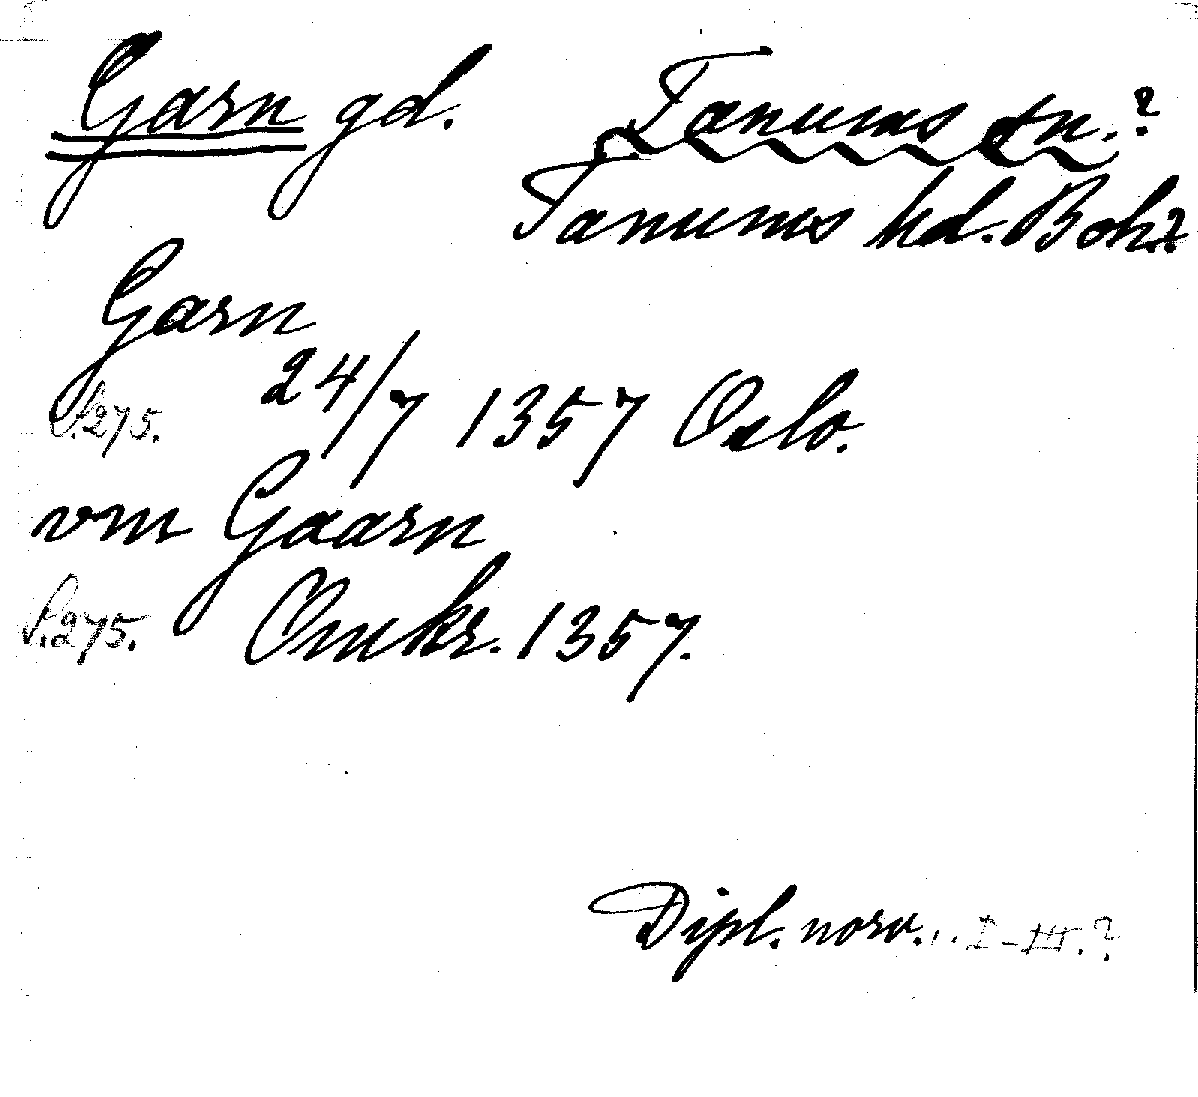 Garn gd. Tanums sn.?
Tanums hd. Boh.?
Garn
24/7 1357 Oslo.
S. 275.
vm Gaarn
S. 275. Omkr. 1357.
Dipl. norv. I-III.?